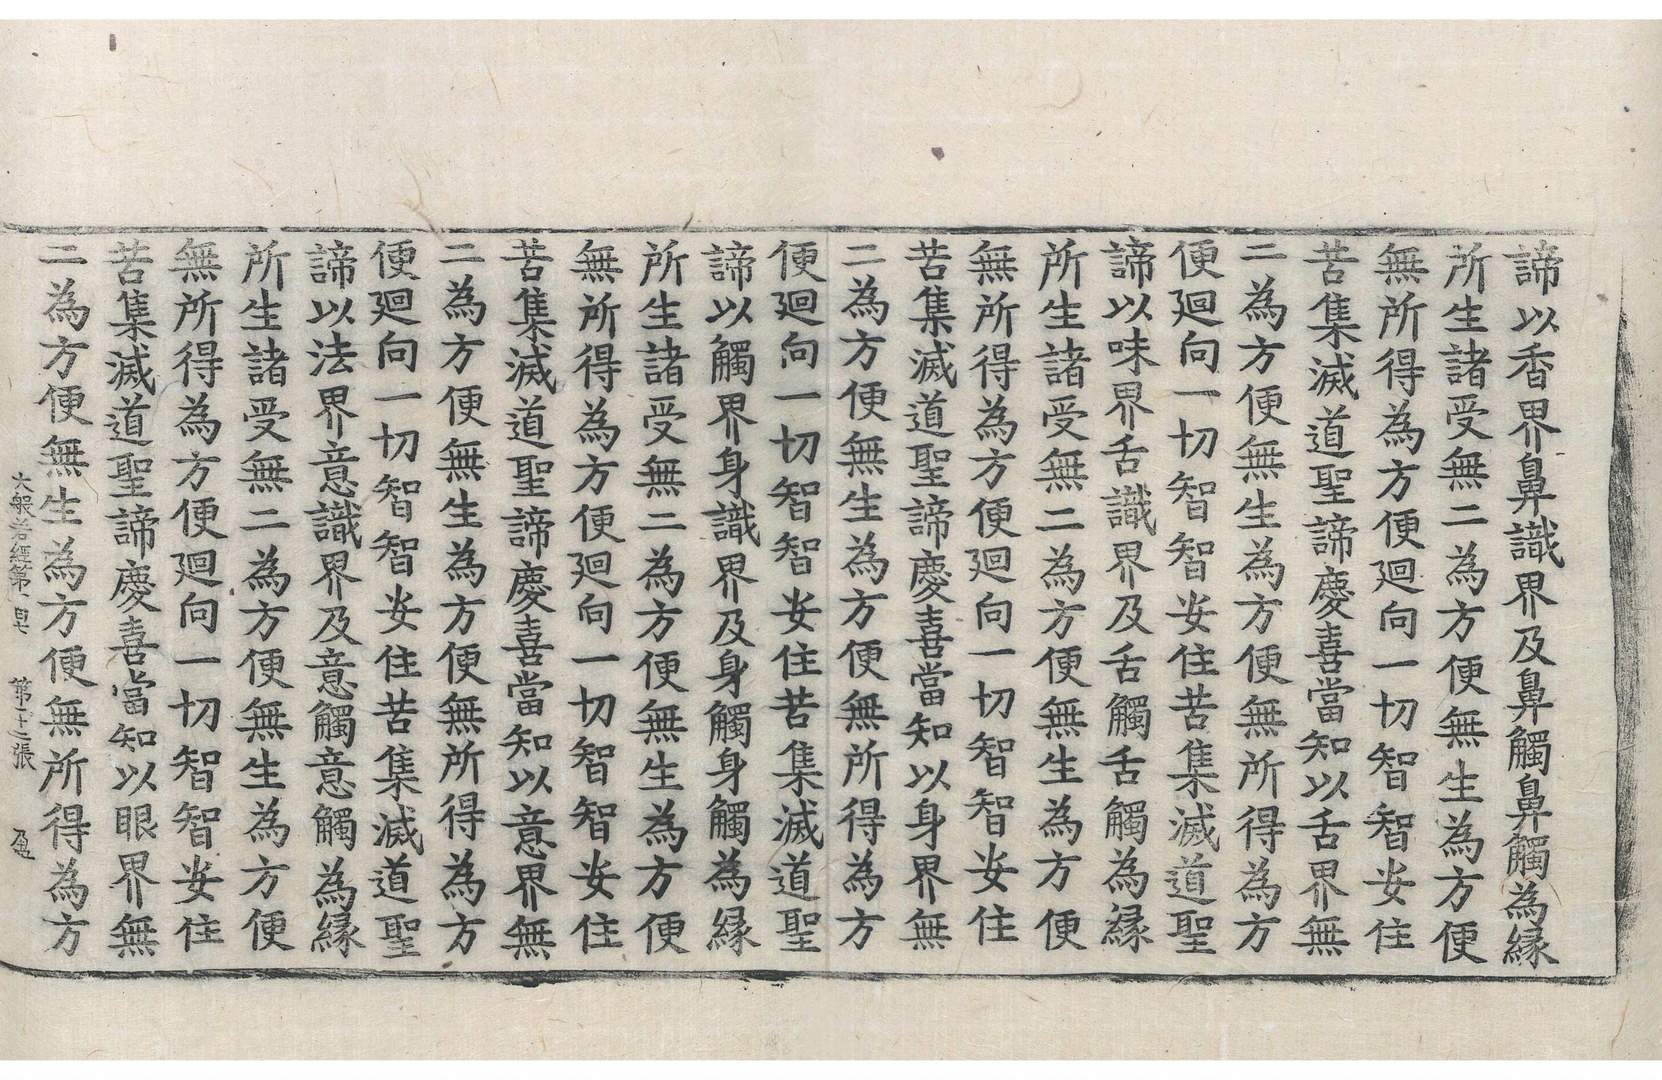 諦以香界鼻識界及鼻觸鼻觸為緣
所生諸受無二為方便無生為方便
無所得為方便廻向一切智智安住
苦集滅道聖諦慶喜當知以舌界無
二為方便無生為方便無所得為方
便廻向一切智智安住苦集滅道聖
諦以味界舌識界及舌觸舌觸為緣
所生諸受無二為方便無生為方便
無所得為方便廻向一切智智安住
苦集滅道聖諦慶喜當知以身界無
二為方便無生為方便無所得為方
便廻向一切智智安住苦集滅道聖
諦以觸界身識界及身觸身觸為緣
所生諸受無二為方便無生為方便
無所得為方便廻向一切智智安住
苦集滅道聖諦慶喜當知以意界無
二為方便無生為方便無所得為方
便廻向一切智智安住苦集滅道聖
諦以法界意識界及意觸意觸為緣
所生諸受無二為方便無生為方便
無所得為方便廻向一切智智安住
苦集滅道聖諦慶喜當知以眼界無
二為方便無生為方便無所得為方
般若經第 第 張 盈